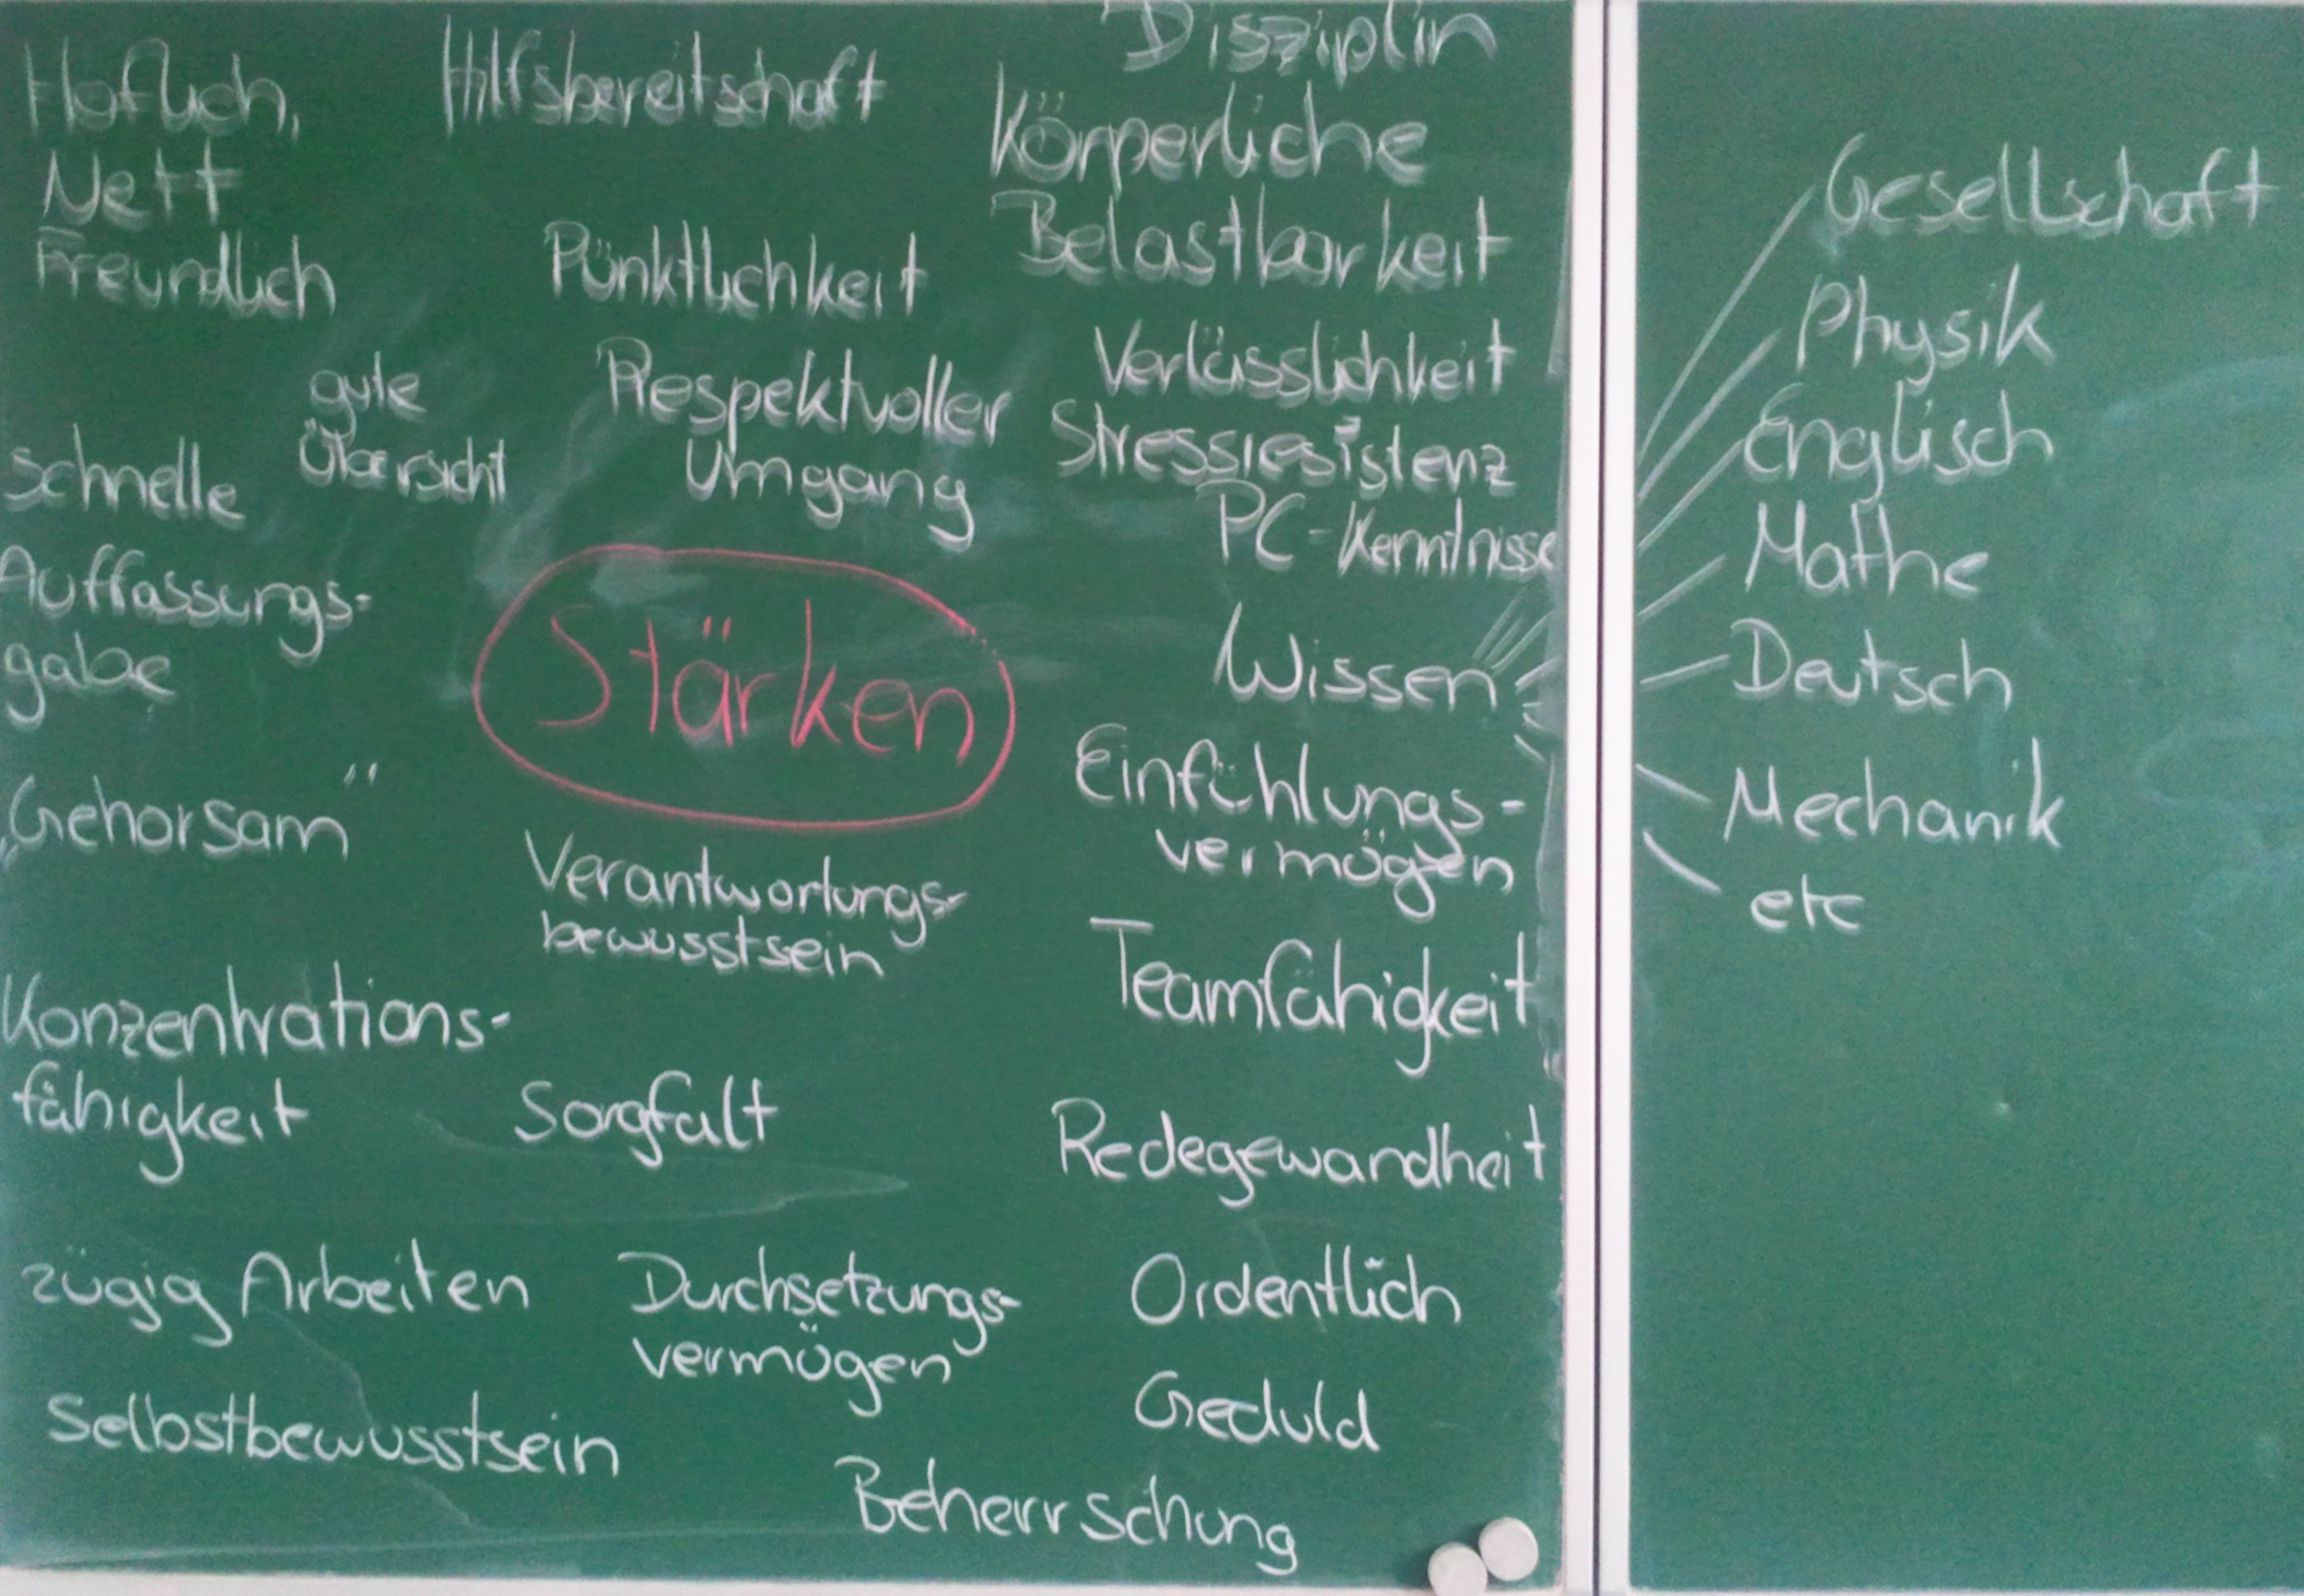 Höflich,
Nett
Freundlich
Hilfsbereitschaft
Disziplin
Körperliche
Belastbarkeit
Pünktlichkeit
gute
Übersicht
Respektvoller
Umgang
Verlässlichkeit
Stressresistenz
PC-Kenntnisse
schnelle
Auffassungs-
gabe
Stärken
Wissen
Einfühlungs-
vermögen
„Gehorsam"
Verantwortungs-
bewusstsein
Teamfähigkeit
Konzentrations-
fähigkeit
Sorgfalt
Redegewandheit
zügig Arbeiten
Durchsetzungs-
vermögen
Ordentlich
Geduld
Selbstbewusstsein
Beherrschung
Gesellschaft
Physik
Englisch
Mathe
Deutsch
Mechanik
etc